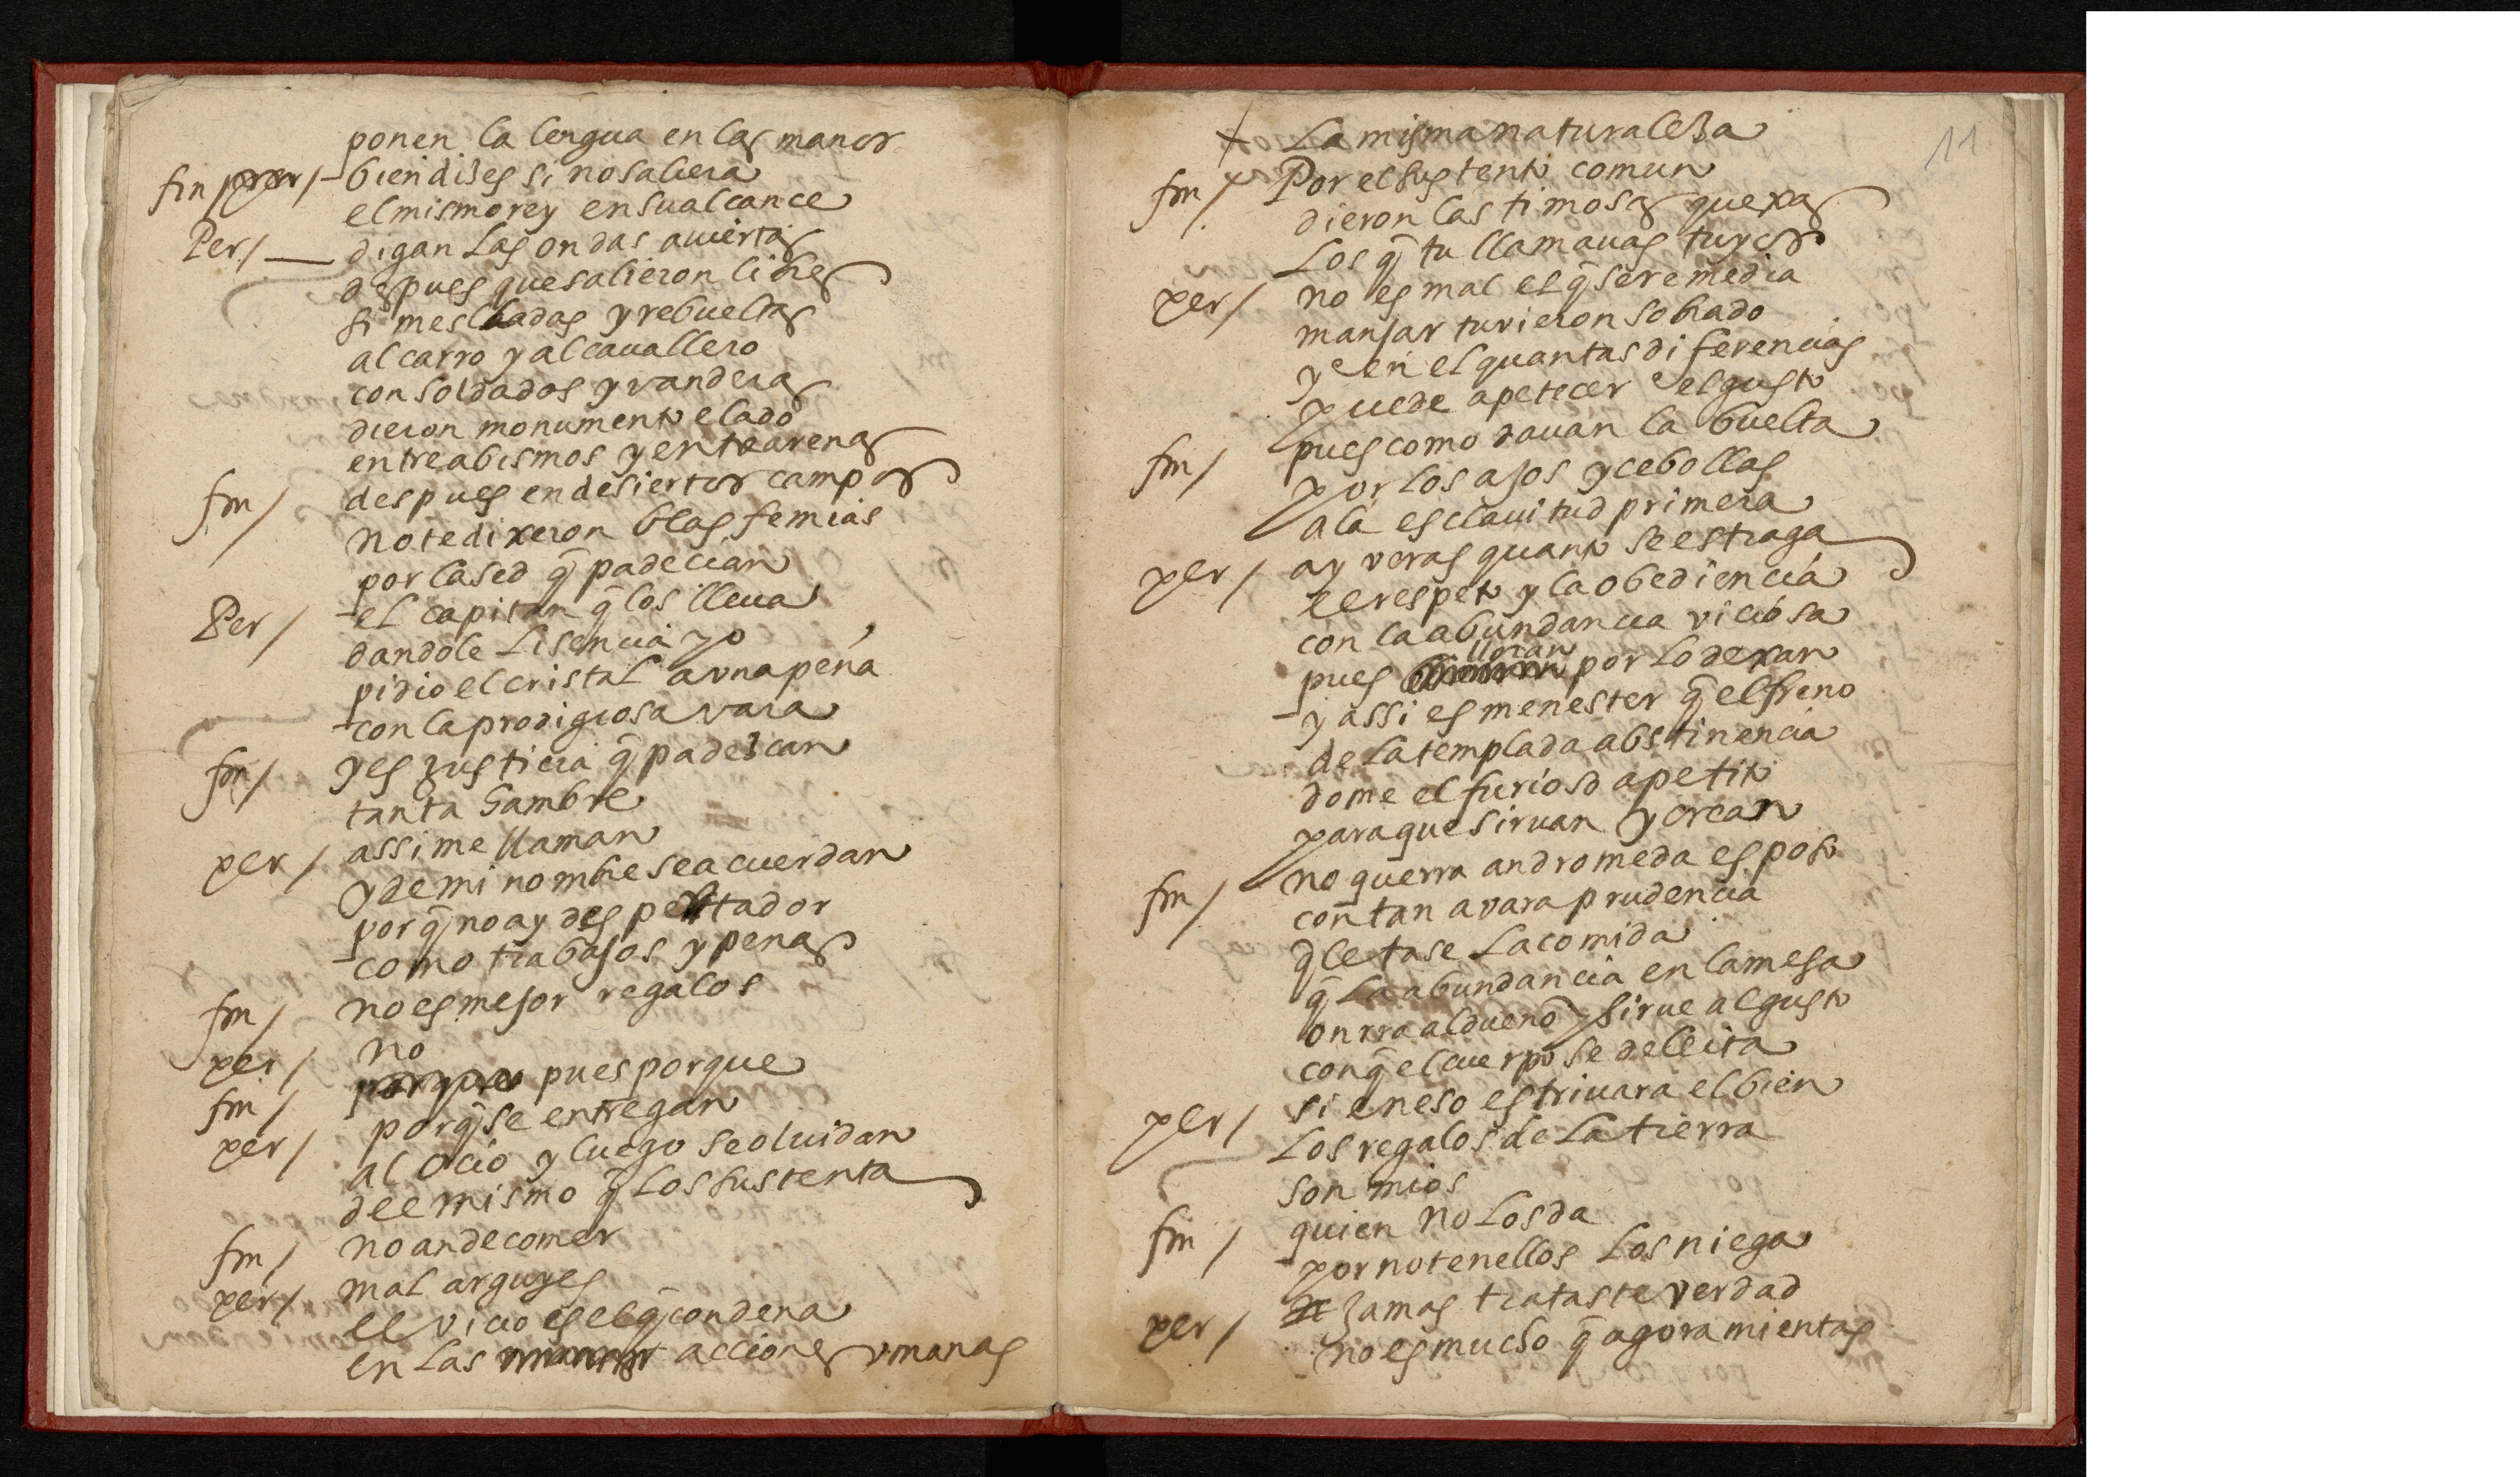 ponen la lengua en las manos
fin / per / bien dizes si no saliera
el mismo rey en su alcance
Per / digan las ondas auiertas
despues que salieron libres
si mescladas y rebueltas
al carro y al cauallero
con soldados y vanderas
dieron monumento elado
entre abismos y entre arenas
fin / despues en desiertos campos
no te dixeron blasfemias
por la sed q̃ padecian
Per / el capitan q̃ los lleua
dandole lisencia yo
pidio el cristal a vna peña
con la prodigiosa vara
fin / y es justicia q̃ padezcan
tanta hambre
per / assi me llaman
y de mi nombre se acuerdan
porq̃ no ay despertador
como trabajos y penas
fin / no es mejor regalos
per / no
fin / pues porque
per / porq̃ se entregan
al ocio y luego se oluidan
del mismo q̃ los sustenta
fin / no an de comer
per / mal arguyes
el vicio es el q̃ condena
en las acciones vmanas
11
La misma naturaleza
fin / Por el sustento comun
dieron lastimosas quexas
los q̃ tu llamauas tuyos
per / no es mal el q̃ se remedia
manjar tuvieron sobrado
y en el quantas diferencias
puede apetecer el gusto
fin / pues como dauan la buelta
por los ajos y cebollas
a la esclauitud primera
per / ay veras quanto se estraga
el respeto y la obediencia
con la abundancia viciosa
pues lloran por lo dexar
y assi es menester q̃ el freno
de la templada abstinencia
dome el furioso apetito
para que siruan y crean
fin / no querra andromeda esposo
con tan avara prudencia
q̃ le tase la comida
q̃ la abundancia en la mesa
onrra al dueño y sirue al gusto
con q̃ el cuerpo se deleita
per / si en eso estriuara el bien
los regalos de la tierra
son mios
fin / quien no los da
por no tenellos los niega
per / jamas trataste verdad
no es mucho q̃ agora mientas